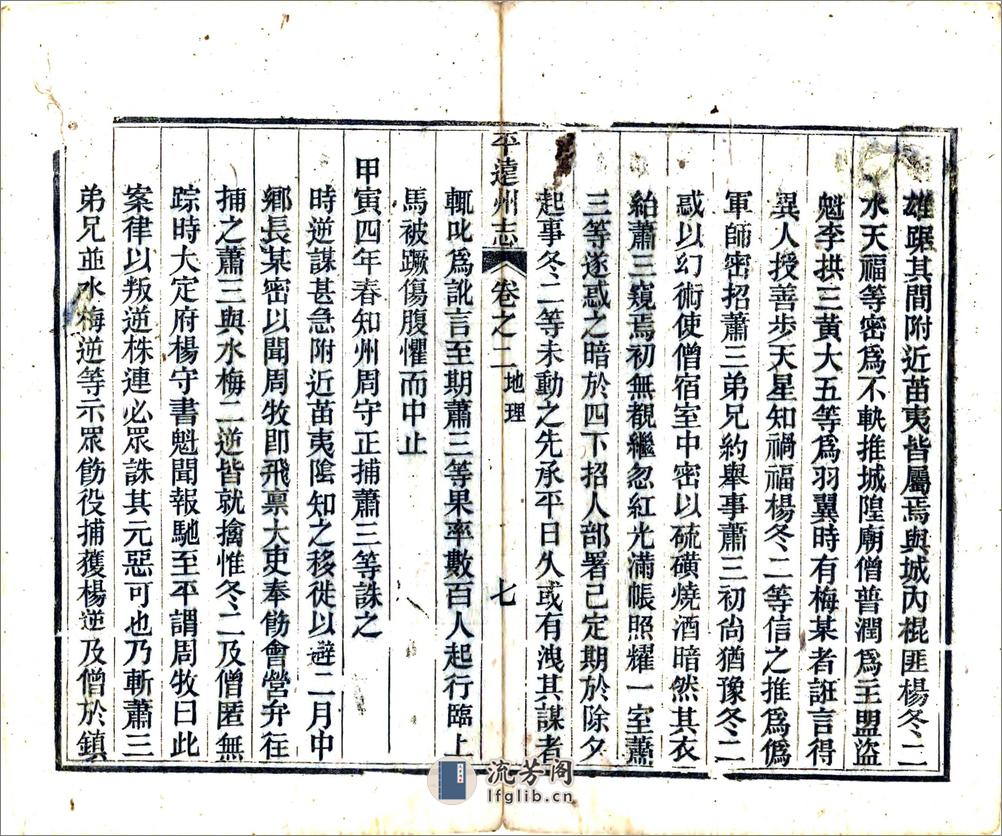 雄踞其間附近苗夷皆屬焉與城內棍匪楊冬二
水天福等密爲不軼推城隍廟僧普潤爲主盟盜
魁李拱三黃大五等爲羽翼時有梅某者誑言得
異人授善步天星知禍福楊冬二等信之推爲僞
軍師密招蕭三弟兄約舉事蕭三初尙猶豫冬二
惑以幻術使僧宿室中密以硫磺燒酒暗然其衣
紿蕭三窺焉初無覩繼忽紅光滿帳照耀一室蕭
三等遂惑之暗於四下招人部署已定期於除夕
起事冬二等未動之先承平日久或有洩其謀者
平遠州志 卷之二 地理 七
輒叱爲訛言至期蕭三等果率數百人起行臨上
馬被蹶傷腹懼而中止
甲寅四年春知州周守正捕蕭三等誅之
時逆謀甚急附近苗夷陰知之移徙以避二月中
鄉長某密以聞周牧卽飛禀大吏奉飭會營弁往
捕之蕭三與水梅二逆皆就擒惟冬二及僧匿無
踪時大定府楊守書魁聞報馳至平謂周牧曰此
案律以叛逆株連必眾誅其元惡可也乃斬蕭三
弟兄並水梅逆等示眾飭役捕獲楊逆及僧於鎭
流芳阁
lfglib.cn